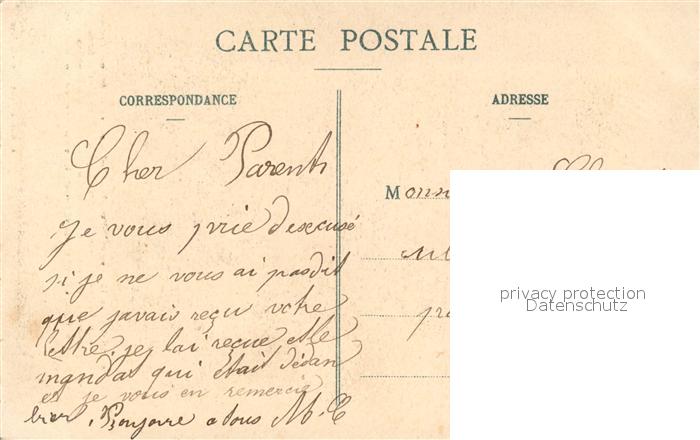 CARTE POSTALE
CORRESPONDANCE
ADRESSE
Cher Parents
Je vous prie dexcusé
si je ne vous ai pasdit
que javais reçu votre
lettre, je lai reçue et le
mandat qui était dédan
et je vous en remercie
bien, Bonjour a tous M. C
Monn
privacy protection
Datenschutz